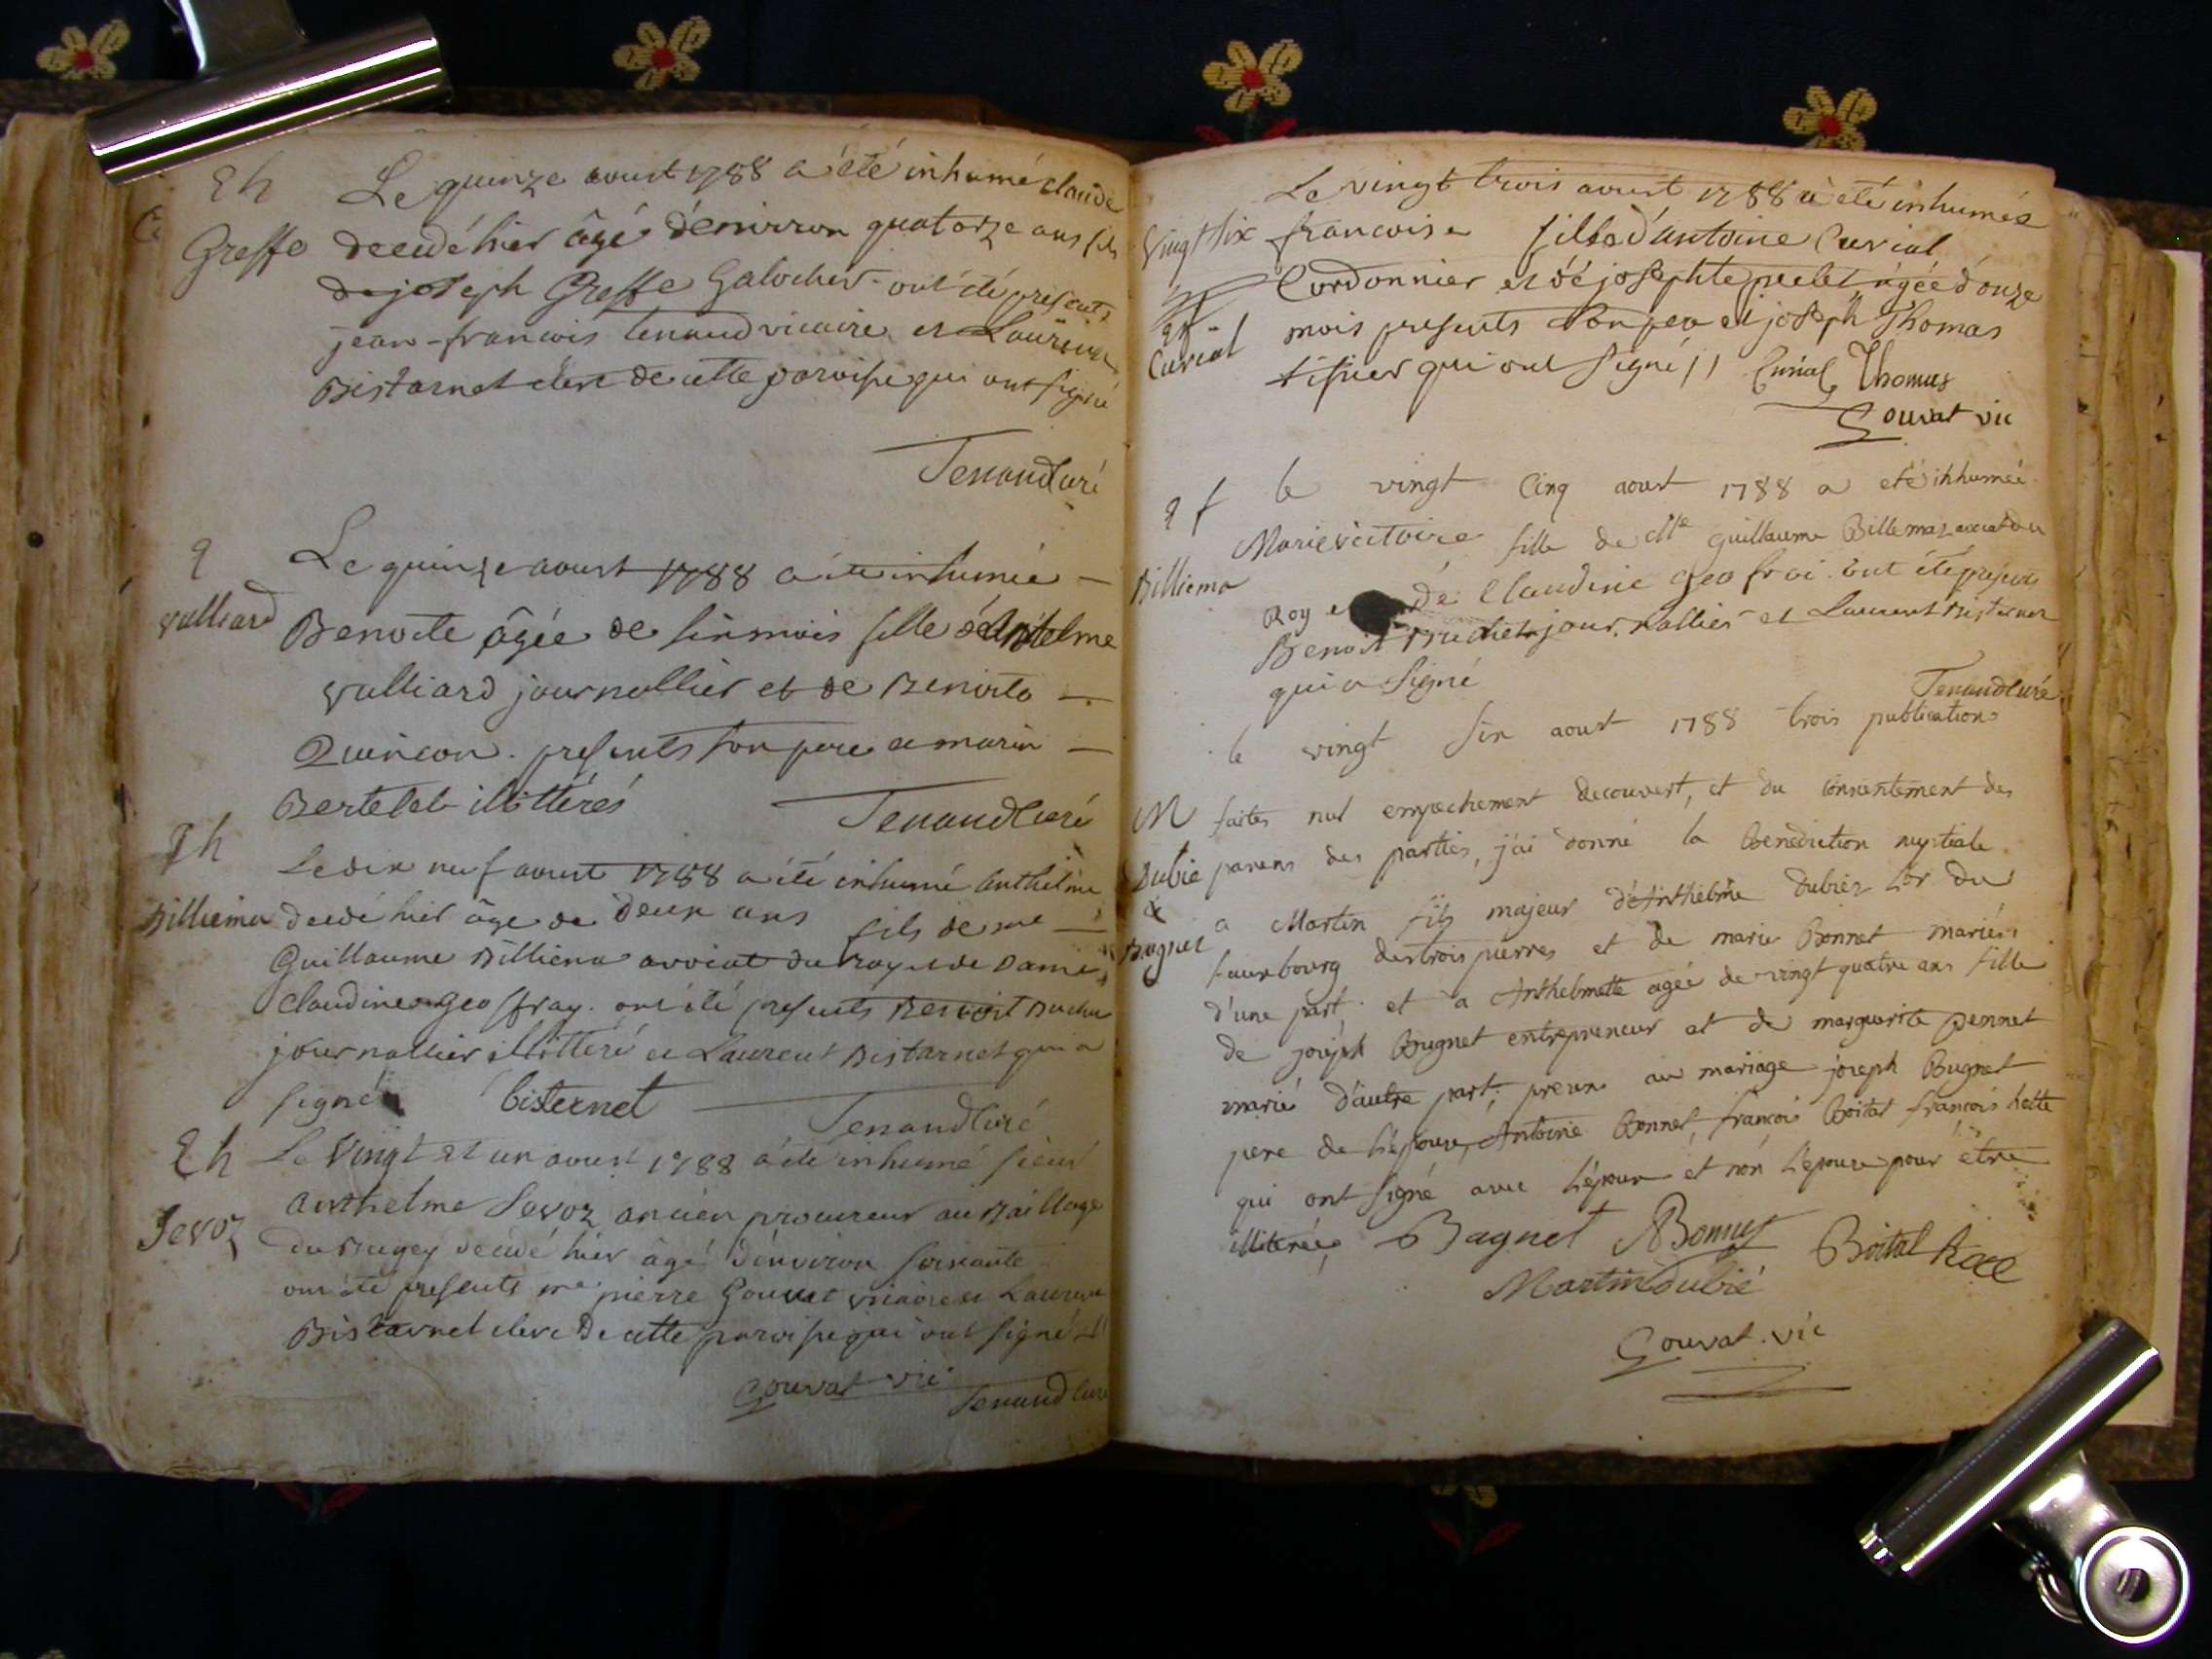 Le quinze aoust 1788 a été inhumé claude
Greffe decedé hier âgé d'environ quatorze ans fils
de joseph Greffe Galocher ont été presents
jean-francois tenaud vicaire et Laurent
Bistarnet clerc de cette paroisse qui ont signé
Tenaud curé
Le quinze aoust 1788 a été inhumée
vulliard
Benoite âgée de six mois fille d'Antelme
vulliard journallier et de Benoite
Quincon. presents son pere et marin
Bertelet illitterés
Tenaud curé
Le dix neuf aoust 1788 a été inhumé Anthelme
Billiema decedé hier âge de deux ans fils de me
Guillaume Billiema avocat du roy et de Dame
Claudine Geoffray. ont été presents Benoit
journallier illitteré et Laurent Bistarnet qui a
signé bisternet
Tenaud Curé
Le Vingt et un aoust 1788 a été inhumé sieur
Sevoz
Anthelme Sevoz ancien procureur au Baillage
du Bugey decedé hier âgé d'environ soixante
ont été presents me pierre Gouvat vicaire et Laurent
Bistarnet clerc de cette paroisse qui ont signé
Gouvat vic
Tenaud Curé
Le vingt trois aoust 1788 a été inhumée
Vingt six francoise fille d'antoine Curial
Cordonnier et de josephte pelet âgée d'onze
Curial
mois presents son pere et joseph Thomas
tissier qui ont signé // Curial Thomas
Gouvat vic
le vingt Cinq aoust 1788 a eté inhumeé
Marie victoire fille de Me guillaume Billemaz avocat du
Billiema
Roy et de Claudine Geofroi. ont été presents
Benoit journallier et Laurent Bistarnet
qui a signé
Tenaud Curé
le vingt six aout 1788 trois publications
M faites nul empechement decouvert, et du consentement des
Dubié parens des parties, j'ai donné la benediction nuptiale
&
a Martin fils majeur d'Anthelme Dubiez du
Bugnet
fauxbourg des trois pierres et de marie Bonnet mariés
d'une part. et a Anthelmette agée de vingt quatre ans fille
de joseph Bugnet entrepreneur et de marguerite pennet
marié d'autre part. presens au mariage joseph Bugnet
pere de l'epouse, Antoine Bonnet, françois Boitat françois
qui ont signé avec l'époux et non l'epouse pour etre
illiterée Bugnet ABonnet Boitat
Martin dubié
Gouvat vic